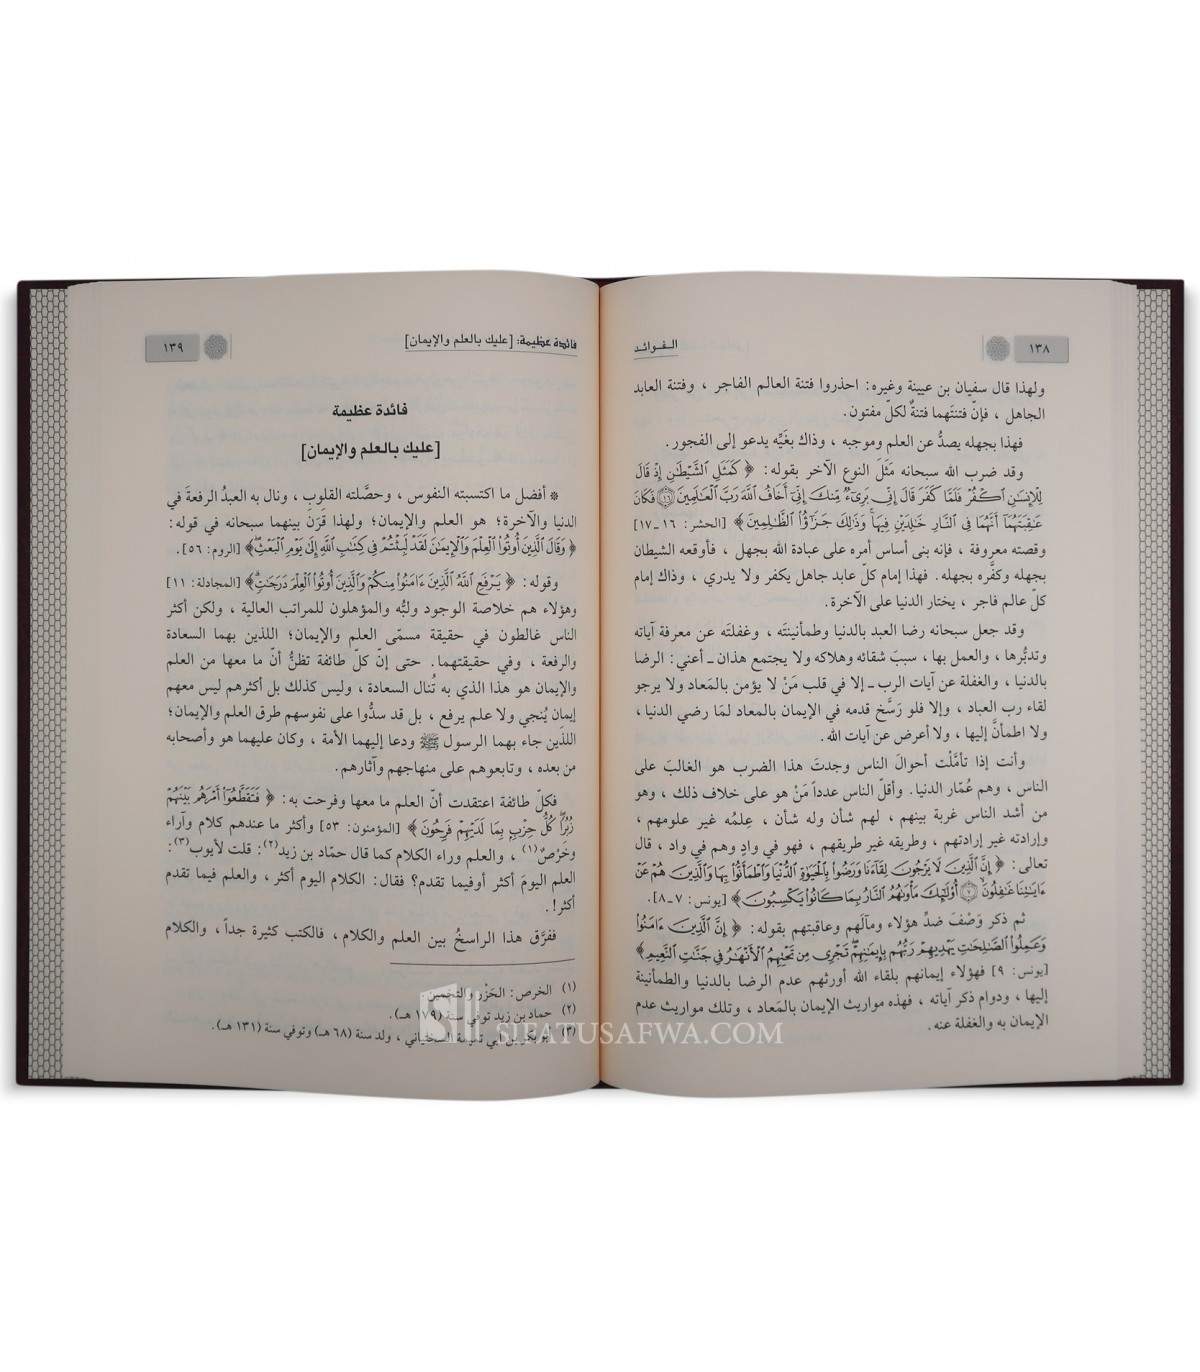 ١٣٨
الفوائد
ولهذا قال سفيان بن عيينة وغيره: احذروا فتنة العالم الفاجر ، وفتنة العابد
الجاهل ، فإنّ فتنتَهما فتنةٌ لكلّ مفتون.
فهذا بجهله يصدُّ عن العلم وموجبه ، وذاك بغَيِّه يدعو إلى الفجور .
وقد ضرب الله سبحانه مَثَلَ النوع الآخر بقوله: ﴿ كَمَثَلِ ٱلشَّيْطَٰنِ إِذْ قَالَ
لِلْإِنسَٰنِ ٱكْفُرْ فَلَمَّا كَفَرَ قَالَ إِنِّى بَرِىٓءٌ مِّنكَ إِنِّىٓ أَخَافُ ٱللَّهَ رَبَّ ٱلْعَٰلَمِينَ ۝١٦ فَكَانَ
عَٰقِبَتَهُمَآ أَنَّهُمَا فِى ٱلنَّارِ خَٰلِدَيْنِ فِيهَا ۚ وَذَٰلِكَ جَزَٰٓؤُا۟ ٱلظَّٰلِمِينَ ﴾ [الحشر: ١٦ـ١٧]
وقصته معروفة ، فإنه بنى أساس أمره على عبادة الله بجهل ، فأوقعه الشيطان
بجهله وكفَّره بجهله. فهذا إمام كلّ عابد جاهل يكفر ولا يدري ، وذاك إمام
كلّ عالم فاجر ، يختار الدنيا على الآخرة.
وقد جعل سبحانه رضا العبد بالدنيا وطمأنينتَه ، وغفلتَه عن معرفة آياته
وتدبُّرها ، والعمل بها ، سببَ شقائه وهلاكه ولا يجتمع هذان ـ أعني: الرضا
بالدنيا ، والغفلة عن آيات الرب ـ إلا في قلب مَنْ لا يؤمن بالمَعاد ولا يرجو
لقاء رب العباد ، وإلا فلو رَسَّخ قدمه في الإيمان بالمعاد لمَا رضي الدنيا ،
ولا اطمأنَّ إليها ، ولا أعرض عن آيات الله.
وأنت إذا تأمَّلْت أحوالَ الناس وجدتَ هذا الضرب هو الغالبَ على
الناس ، وهم عُمّار الدنيا. وأقلّ الناس عدداً مَنْ هو على خلاف ذلك ، وهو
من أشد الناس غربة بينهم ، لهم شأن وله شأن ، عِلمُه غير علومهم ،
وإرادته غير إرادتهم ، وطريقه غير طريقهم ، فهو في وادٍ وهم في واد ، قال
تعالى: ﴿ إِنَّ ٱلَّذِينَ لَا يَرْجُونَ لِقَآءَنَا وَرَضُوا۟ بِٱلْحَيَوٰةِ ٱلدُّنْيَا وَٱطْمَأَنُّوا۟ بِهَا وَٱلَّذِينَ هُمْ عَنْ
ءَايَٰتِنَا غَٰفِلُونَ ۝٧ أُو۟لَٰٓئِكَ مَأْوَىٰهُمُ ٱلنَّارُ بِمَا كَانُوا۟ يَكْسِبُونَ ﴾ [يونس: ٧ـ٨].
ثم ذكر وَصْفَ ضدِّ هؤلاء ومآلَهم وعاقبتهم بقوله: ﴿ إِنَّ ٱلَّذِينَ ءَامَنُوا۟
وَعَمِلُوا۟ ٱلصَّٰلِحَٰتِ يَهْدِيهِمْ رَبُّهُم بِإِيمَٰنِهِمْ ۖ تَجْرِى مِن تَحْتِهِمُ ٱلْأَنْهَٰرُ فِى جَنَّٰتِ ٱلنَّعِيمِ ﴾
[يونس: ٩] فهؤلاء إيمانهم بلقاء الله أورثهم عدم الرضا بالدنيا والطمأنينة
إليها ، ودوام ذكر آياته ، فهذه مواريث الإيمان بالمَعاد ، وتلك مواريث عدم
الإيمان به والغفلة عنه.
فائدة عظيمة: [عليك بالعلم والإيمان]
١٣٩
فائدة عظيمة
[عليك بالعلم والإيمان]
* أفضل ما اكتسبته النفوس ، وحصَّلته القلوب ، ونال به العبدُ الرفعةَ في
الدنيا والآخرة؛ هو العلم والإيمان؛ ولهذا قَرَنَ بينهما سبحانه في قوله:
﴿ وَقَالَ ٱلَّذِينَ أُوتُوا۟ ٱلْعِلْمَ وَٱلْإِيمَٰنَ لَقَدْ لَبِثْتُمْ فِى كِتَٰبِ ٱللَّهِ إِلَىٰ يَوْمِ ٱلْبَعْثِ ﴾ [الروم: ٥٦].
وقوله: ﴿ يَرْفَعِ ٱللَّهُ ٱلَّذِينَ ءَامَنُوا۟ مِنكُمْ وَٱلَّذِينَ أُوتُوا۟ ٱلْعِلْمَ دَرَجَٰتٍ ۚ﴾ [المجادلة: ١١]
وهؤلاء هم خلاصة الوجود ولبُّه والمؤهلون للمراتب العالية ، ولكن أكثر
الناس غالطون في حقيقة مسمّى العلم والإيمان؛ اللذين بهما السعادة
والرفعة ، وفي حقيقتهما. حتى إنّ كلّ طائفة تظنُّ أنّ ما معها من العلم
والإيمان هو هذا الذي به تُنال السعادة ، وليس كذلك بل أكثرهم ليس معهم
إيمان يُنجي ولا علم يرفع ، بل قد سدُّوا على نفوسهم طرق العلم والإيمان؛
اللذَين جاء بهما الرسول ﷺ ودعا إليهما الأمة ، وكان عليهما هو وأصحابه
من بعده ، وتابعوهم على منهاجهم وآثارهم.
فكلّ طائفة اعتقدت أنّ العلم ما معها وفرحت به: ﴿ فَتَقَطَّعُوٓا۟ أَمْرَهُم بَيْنَهُمْ
زُبُرًا ۖ كُلُّ حِزْبٍۭ بِمَا لَدَيْهِمْ فَرِحُونَ ﴾ [المؤمنون: ٥٣] وأكثر ما عندهم كلام وآراء
وخَرْصٌ(١) ، والعلم وراء الكلام كما قال حمّاد بن زيد(٢): قلت لأيوب(٣):
العلم اليومَ أكثر أوفيما تقدم؟ فقال: الكلام اليوم أكثر ، والعلم فيما تقدم
أكثر!.
ففرَّق هذا الراسخُ بين العلم والكلام ، فالكتب كثيرة جداً ، والكلام
(١) الخرص: الحَزْر والتخمين.
(٢) حماد بن زيد توفي سنة (١٧٩ هـ).
(٣) أبو بكر بن أبي تميمة السختياني ، ولد سنة (٦٨ هـ) وتوفي سنة (١٣١ هـ).
SIFATUSAFWA.COM